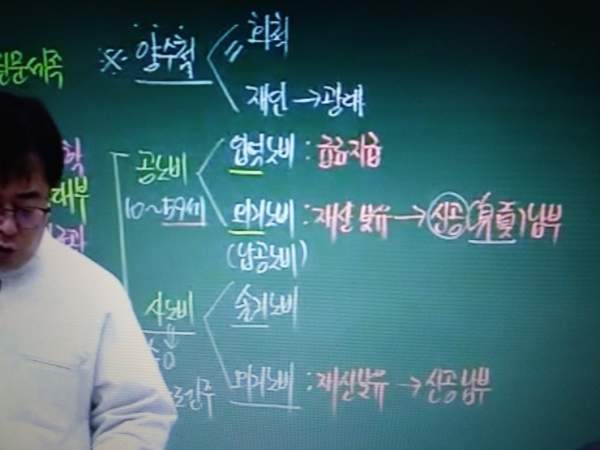 권문세족
※ 양수척
화척
재인 → 광대
공노비
10~59세
입역노비 : 급료지급
외거노비 : 재산보유 → 신공(身貢)납부
(납공노비)
사노비
솔거노비
외거노비 : 재산보유 → 신공납부
학
대부